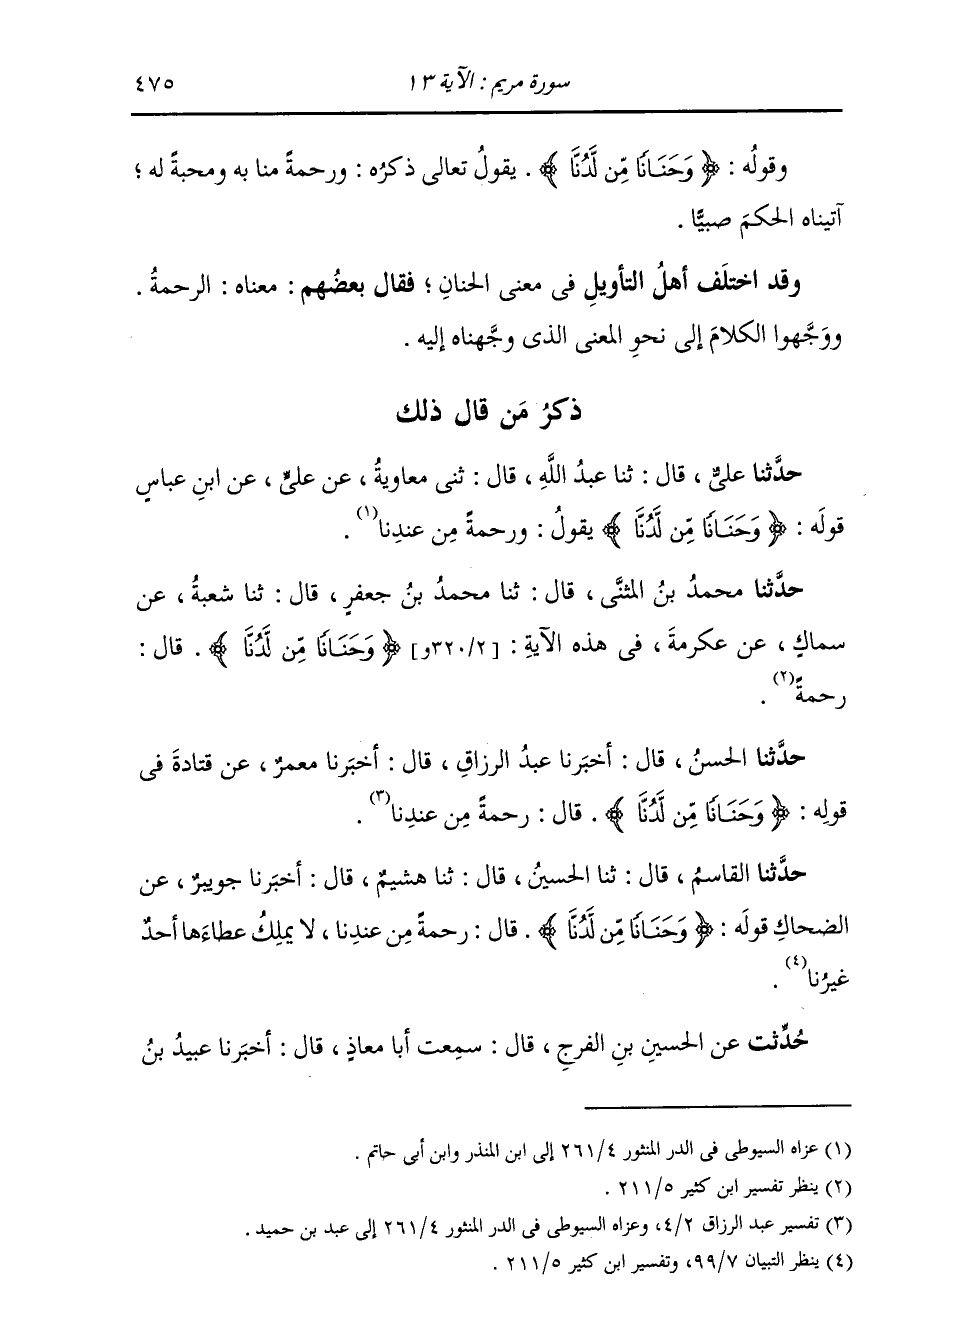 سورة مريم : الآية ١٣ ٤٧٥
وقولُه : ﴿ وَحَنَانًا مِّن لَّدُنَّا ﴾ . يقولُ تعالى ذكرُه : ورحمةً منا به ومحبةً له ؛
آتيناه الحكمَ صبيًّا .
وقد اختلَف أهلُ التأويلِ فى معنى الحنانِ ؛ فقال بعضُهم : معناه : الرحمةُ .
ووَجَّهوا الكلامَ إلى نحوِ المعنى الذى وجَّهناه إليه .
ذكرُ مَن قال ذلك
حدَّثنا علىٌّ ، قال : ثنا عبدُ اللَّهِ ، قال : ثنى معاويةُ ، عن علىٍّ ، عن ابنِ عباسٍ
قولَه : ﴿ وَحَنَانًا مِّن لَّدُنَّا ﴾ يقولُ : ورحمةً مِن عندِنا(١) .
حدَّثنا محمدُ بنُ المثنَّى ، قال : ثنا محمدُ بنُ جعفرٍ ، قال : ثنا شعبةُ ، عن
سماكٍ ، عن عكرمةَ ، فى هذه الآيةِ : [٣٢٠/٢و] ﴿ وَحَنَانًا مِّن لَّدُنَّا ﴾ . قال :
رحمةً(٢) .
حدَّثنا الحسنُ ، قال : أخبَرنا عبدُ الرزاقِ ، قال : أخبَرنا معمرٌ ، عن قتادةَ فى
قولِه : ﴿ وَحَنَانًا مِّن لَّدُنَّا ﴾ . قال : رحمةً مِن عندِنا(٣) .
حدَّثنا القاسمُ ، قال : ثنا الحسينُ ، قال : ثنا هشيمٌ ، قال : أخبَرنا جويبرٌ ، عن
الضحاكِ قولَه : ﴿ وَحَنَانًا مِّن لَّدُنَّا ﴾ . قال : رحمةً مِن عندِنا ، لا يملِكُ عطاءَها أحدٌ
غيرُنا(٤) .
حُدِّثت عن الحسينِ بنِ الفرجِ ، قال : سمِعت أبا معاذٍ ، قال : أخبَرنا عبيدُ بنُ
(١) عزاه السيوطى فى الدر المنثور ٢٦١/٤ إلى ابن المنذر وابن أبى حاتم .
(٢) ينظر تفسير ابن كثير ٢١١/٥ .
(٣) تفسير عبد الرزاق ٤/٢، وعزاه السيوطى فى الدر المنثور ٢٦١/٤ إلى عبد بن حميد .
(٤) ينظر التبيان ٩٩/٧، وتفسير ابن كثير ٢١١/٥ .